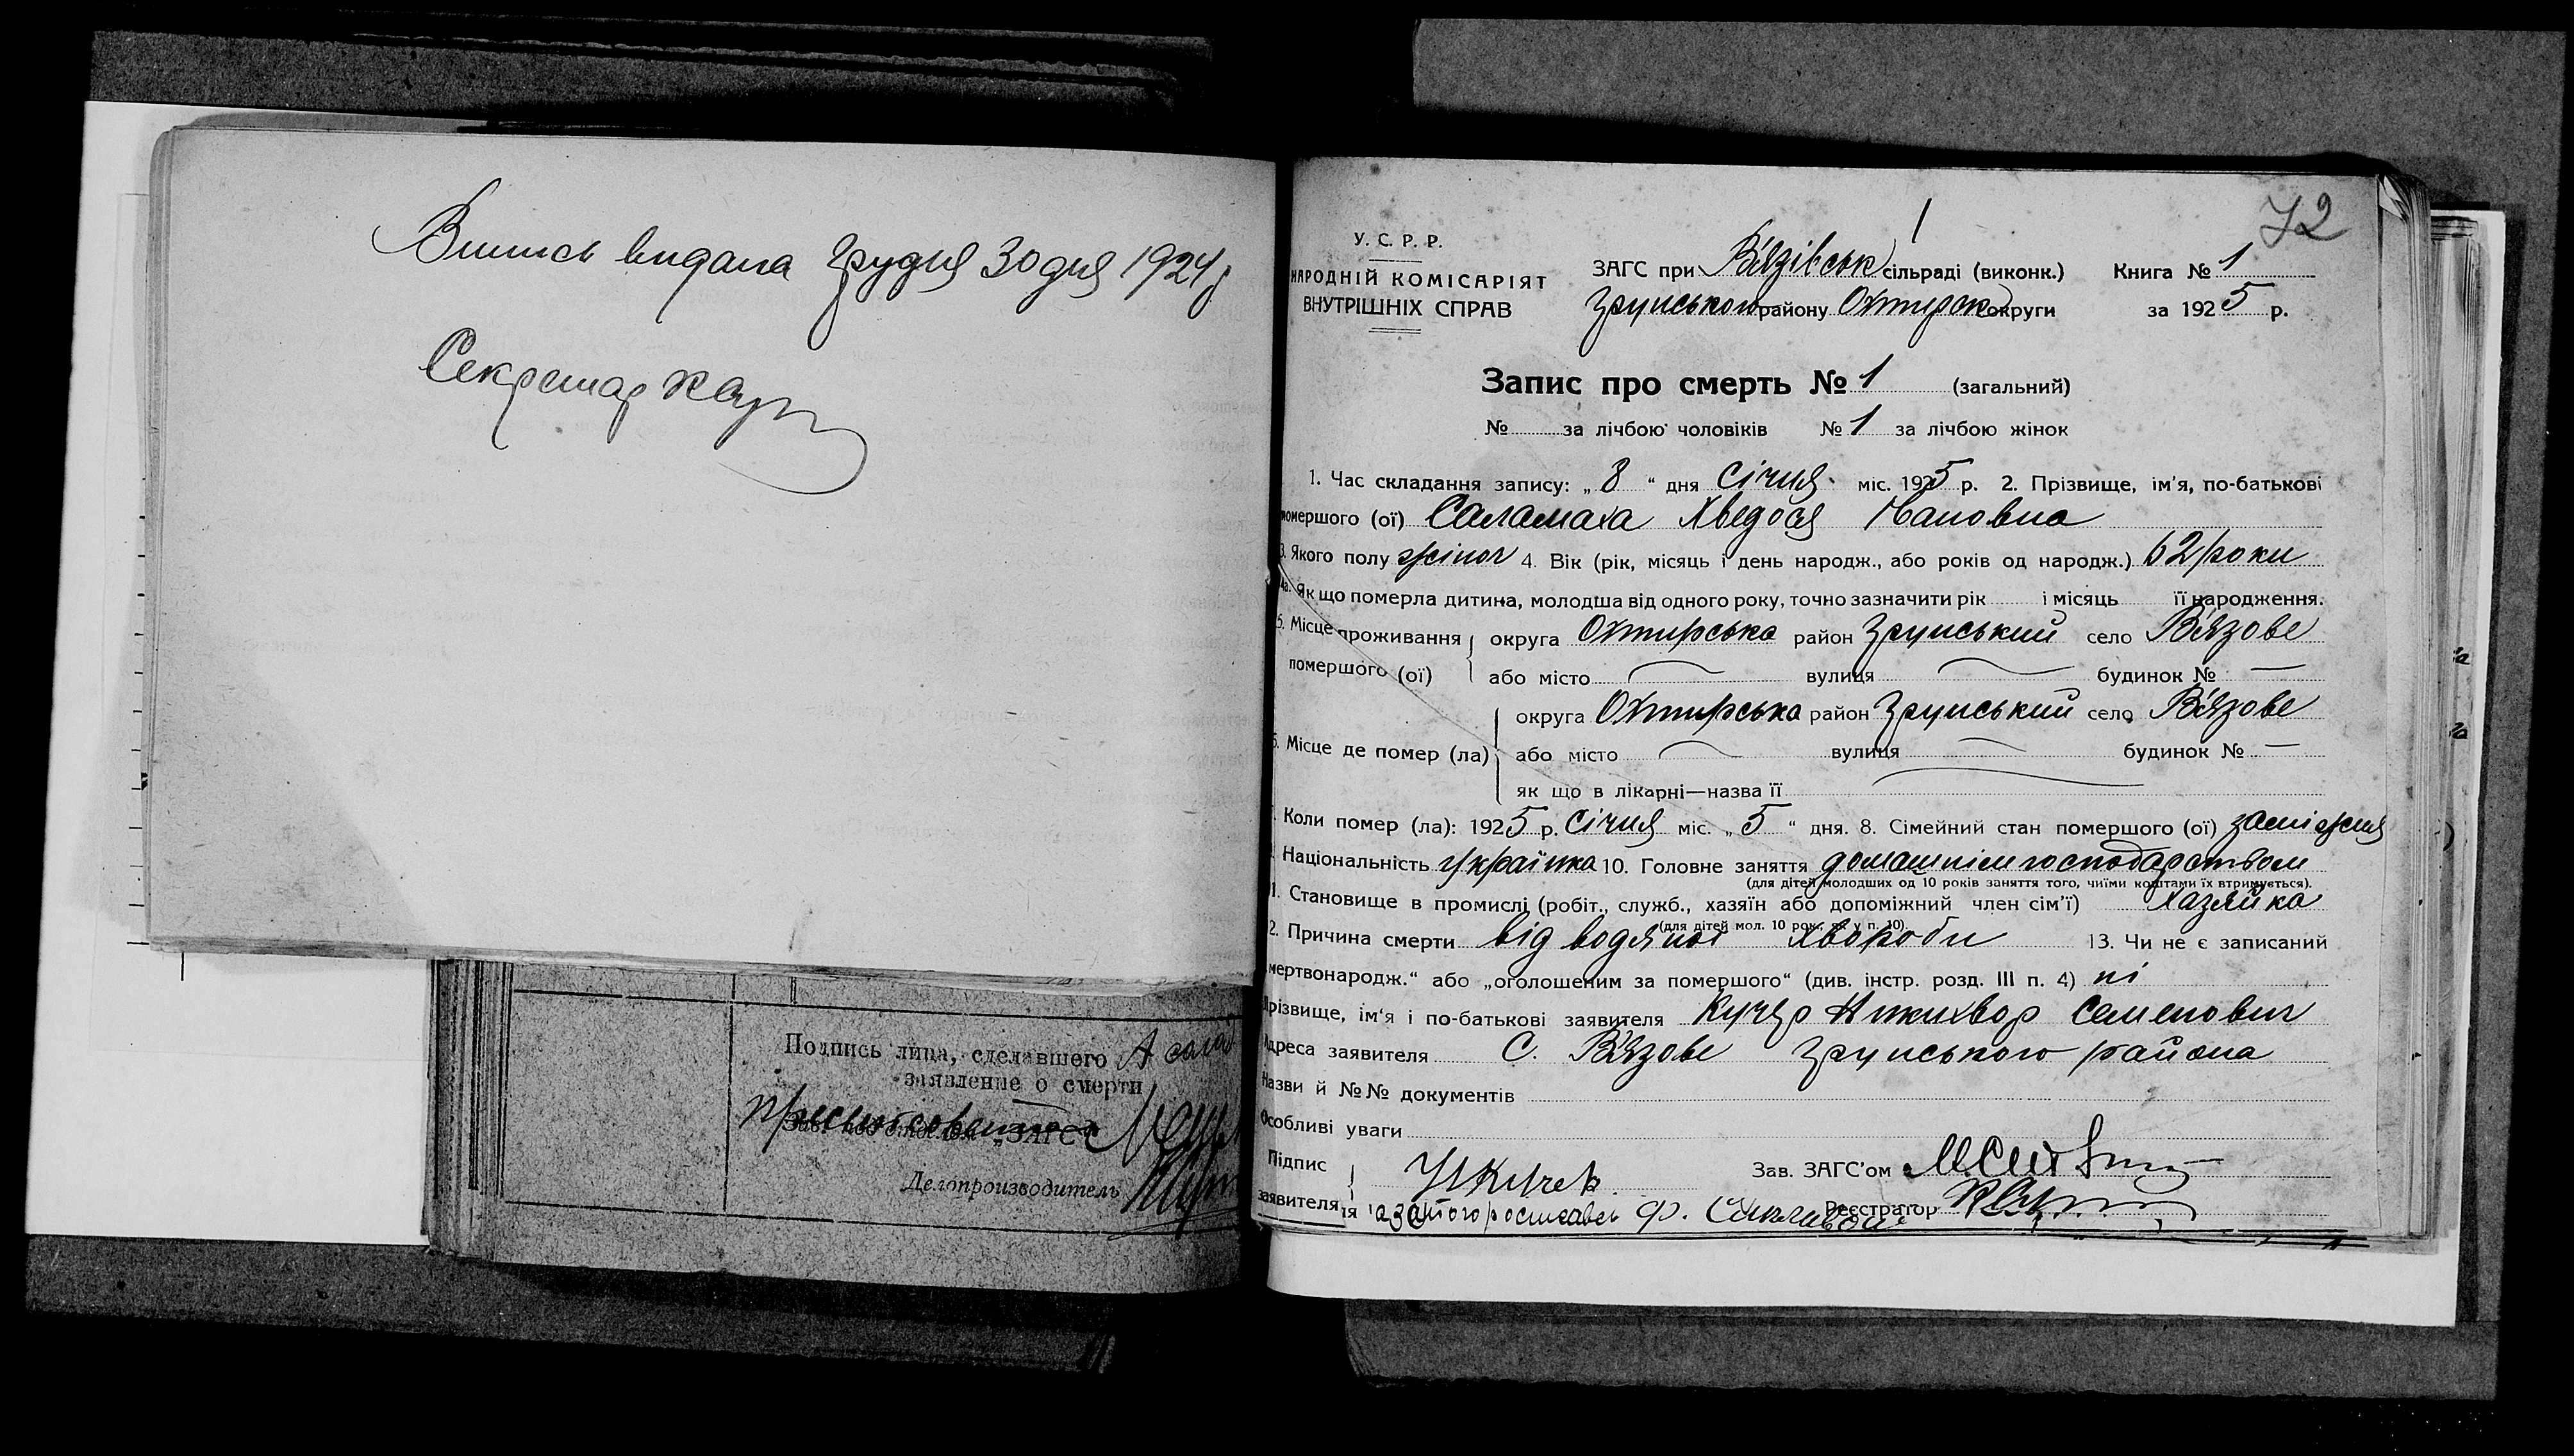 Випись видана грудня 30 дня 1924 р
Секретар
Подпись лица, сделавшего
заявление о смерти
Делопроизводитель
72
1
У. С. Р. Р.
НАРОДНІЙ КОМІСАРІЯТ
ВНУТРІШНІХ СПРАВ
ЗАГС при Вязівськ сільраді (виконк.) Книга № 1
Грунського району Охтирск округи за 1925 р.
Запис про смерть № 1 (загальний)
№ за лічбою чоловіків № 1 за лічбою жінок
1. Час складання запису: „8“ дня Січня міс. 1925 р. 2. Прізвище, ім'я, по-батькові
помершого (ої) Саламаха Хведося
3. Якого полу жіноч 4. Вік (рік, місяць і день народж., або років од народж.) 62 роки
4а. Як що померла дитина, молодша від одного року, точно зазначити рік і місяць її народження.
5. Місце проживання округа Охтирська район Грунський село Вязове
помершого (ої) або місто вулиця будинок № —
округа Охтирська район Грунський село Вязове
6. Місце де помер (ла) або місто вулиця будинок № —
як що в лікарні—назва її
Коли помер (ла): 1925 р. Січня міс. „5“ дня. 8. Сімейний стан помершого (ої) заміжня
Національність Українка 10. Головне заняття домашнім господарством
(для дітей молодших од 10 років заняття того, чиїми коштами їх втримується).
1. Становище в промислі (робіт., служб., хазяїн або допоміжний член сім'ї) Хазяйка
(для дітей мол. 10 рок. як у п. 10).
2. Причина смерти від водяної хвороби 13. Чи не є записаний
мертвонародж.“ або „оголошеним за помершого“ (див. інстр. розд. III п. 4) ні
Прізвище, ім'я і по-батькові заявителя Кучер Никихвор Семенович
Адреса заявителя С. Вязове Грунського района
Назви й №№ документів
Особливі уваги
Підпис
заявителя
Зав. ЗАГС'ом
Реєстратор